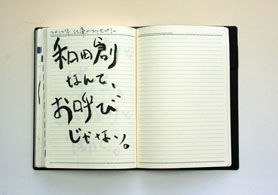 和田創
なんて、
お呼び
じゃない。